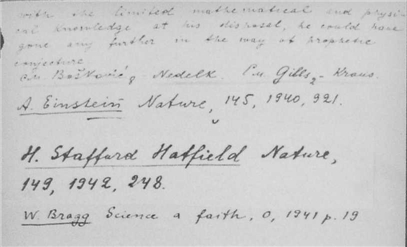 with the limited mathematical and physi-
cal knowledge at his disposal, he could have
gone any further in the way of prophetic
conjecture.
Bošković, Nedelk. Gills, Kraus.
A. Einstein Nature, 145, 1940, 921.
H. Stafford Hatfield Nature,
149, 1942, 248.
W. Bragg Science a faith, 0, 1941 p. 19